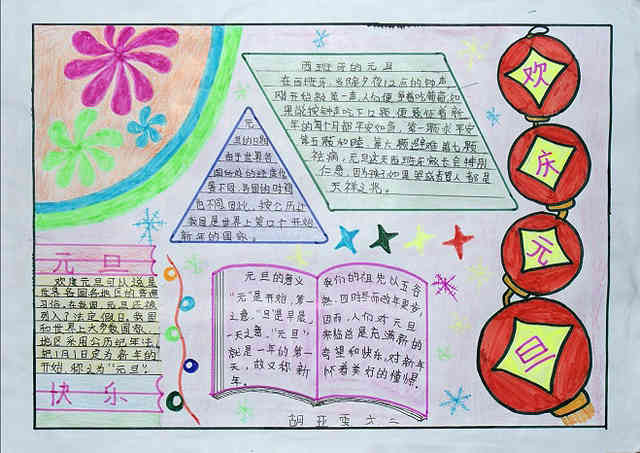 西班牙的元旦
在西班牙,当除夕夜12点的钟声
刚开始敲第一声,人们便争着吃葡萄,如
果能按钟声吃下12颗,便象征着新
年的每个月都平安如意,第一颗求平安
第五颗和睦,第六颗避难,第七颗
祛病,元旦这天西班牙家长会特别
仁慈,因为孩子如果哭或者骂人都是
不祥之兆。
元
旦的日期
由于世界各
国所处的经度位
置不同,各国的时间
也不同,因此,按公历计
我国是世界上第12个开始
新年的国家。
欢
庆
元
旦
元旦
欢度元旦可以说是
世界各国各地区的普遍
习俗,在我国,元旦已被
列入了法定假日,我国
和世界上大多数国家、
地区采用公历纪年法,
把1月1日定为新年的
开始,称之为“元旦”。
快乐
元旦的意义
“元”是开始,第一
之意,“旦”是早晨,
一天之意,“元旦”,
就是一年的第一
天,故又称新
年。
我们的祖先以五谷
熟,四时毕而改年更岁,
因而,人们对元旦
来临总是充满新的
希望和快乐,对新年
怀着美好的憧憬。
胡亚雯 六二